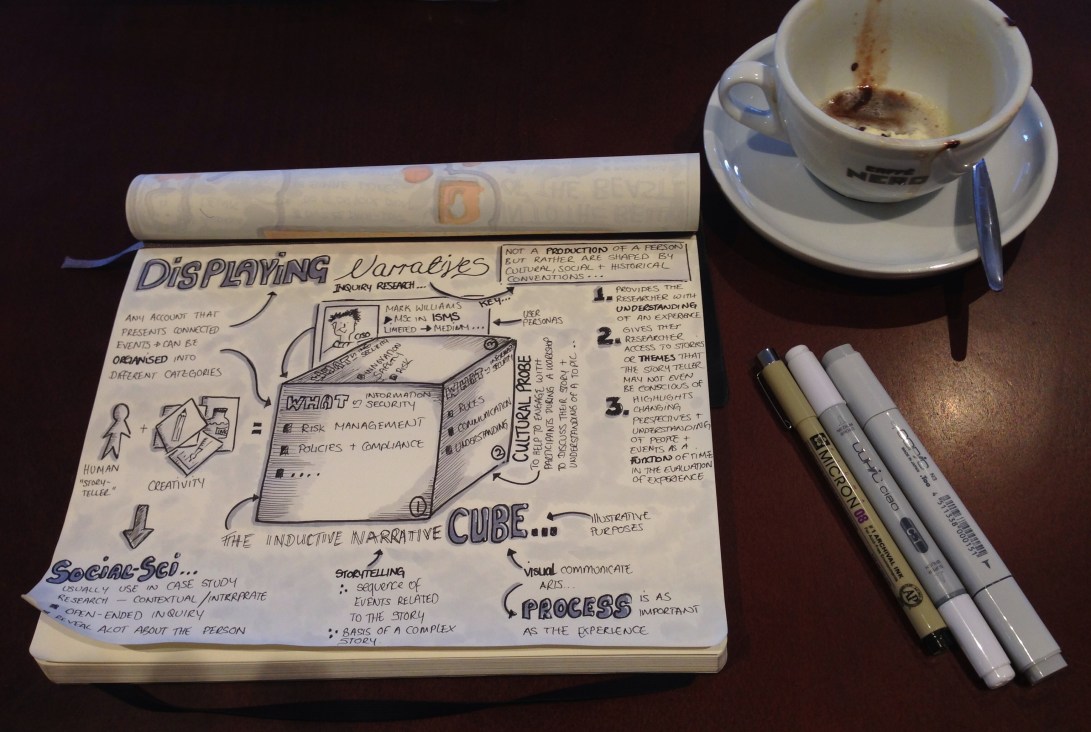 DISPLAYING Narratives
INQUIRY RESEARCH...
NOT A PRODUCTION OF A PERSON
BUT RATHER ARE SHAPED BY
CULTURAL, SOCIAL + HISTORICAL
CONVENTIONS...
KEY...
ANY ACCOUNT THAT
PRESENTS CONNECTED
EVENTS + CAN BE
ORGANISED INTO
DIFFERENT CATEGORIES
MARK WILLIAMS
MSc IN ISMS
LIMITED → MEDIUM...
USER
PERSONAS
1. PROVIDES THE
RESEARCHER WITH
UNDERSTANDING
OF AN EXPERIENCE
2. GIVES THE
RESEARCHER
ACCESS TO STORIES
OR THEMES THAT
THE STORY TELLER
MAY NOT EVEN
BE CONSCIOUS OF
3. HIGHLIGHTS
CHANGING
PERSPECTIVES +
UNDERSTANDING
OF PEOPLE +
EVENTS AS A
FUNCTION OF TIME
IN THE EVALUATION
OF EXPERIENCE
INNOVATION
SAFETY
RISK
WHAT IS INFORMATION
SECURITY
RISK MANAGEMENT
POLICIES + COMPLIANCE
....
1
WHAT IS
RULES
COMMUNICATION
UNDERSTANDING
2
CULTURAL PROBE
TO HELP TO ENGAGE WITH
PARTICIPANTS DURING A WORKSHOP
TO DISCUSS THEIR STORY +
UNDERSTANDING OF A TOPIC...
HUMAN
"STORY-
TELLER"
+
CREATIVITY
=
THE INDUCTIVE NARRATIVE CUBE...
ILLUSTRATIVE
PURPOSES
SOCIAL-SCI...
USUALLY USE IN CASE STUDY
RESEARCH – CONTEXTUAL/INTERPRATE
OPEN-ENDED INQUIRY
REVEAL ALOT ABOUT THE PERSON
STORYTELLING
SEQUENCE OF
EVENTS RELATED
TO THE STORY
BASIS OF A COMPLEX
STORY
VISUAL COMMUNICATE
ARTS...
PROCESS IS AS
IMPORTANT
AS THE EXPERIENCE
CAFFÈ
NERO
MICRON 08
ARCHIVAL INK
AP
COPIC ciao
COPIC